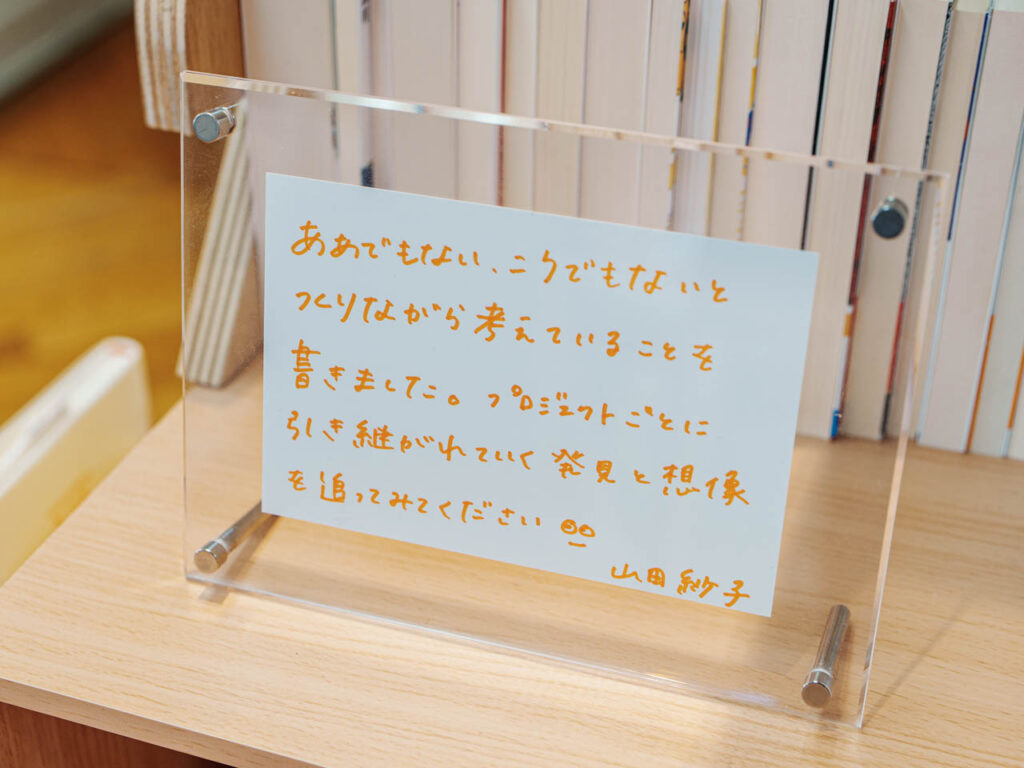 ああでもない、こうでもないと
つくりながら考えていることを
書きました。プロジェクトごとに
引き継がれていく発見と想像
を追ってみてください
山田紗子